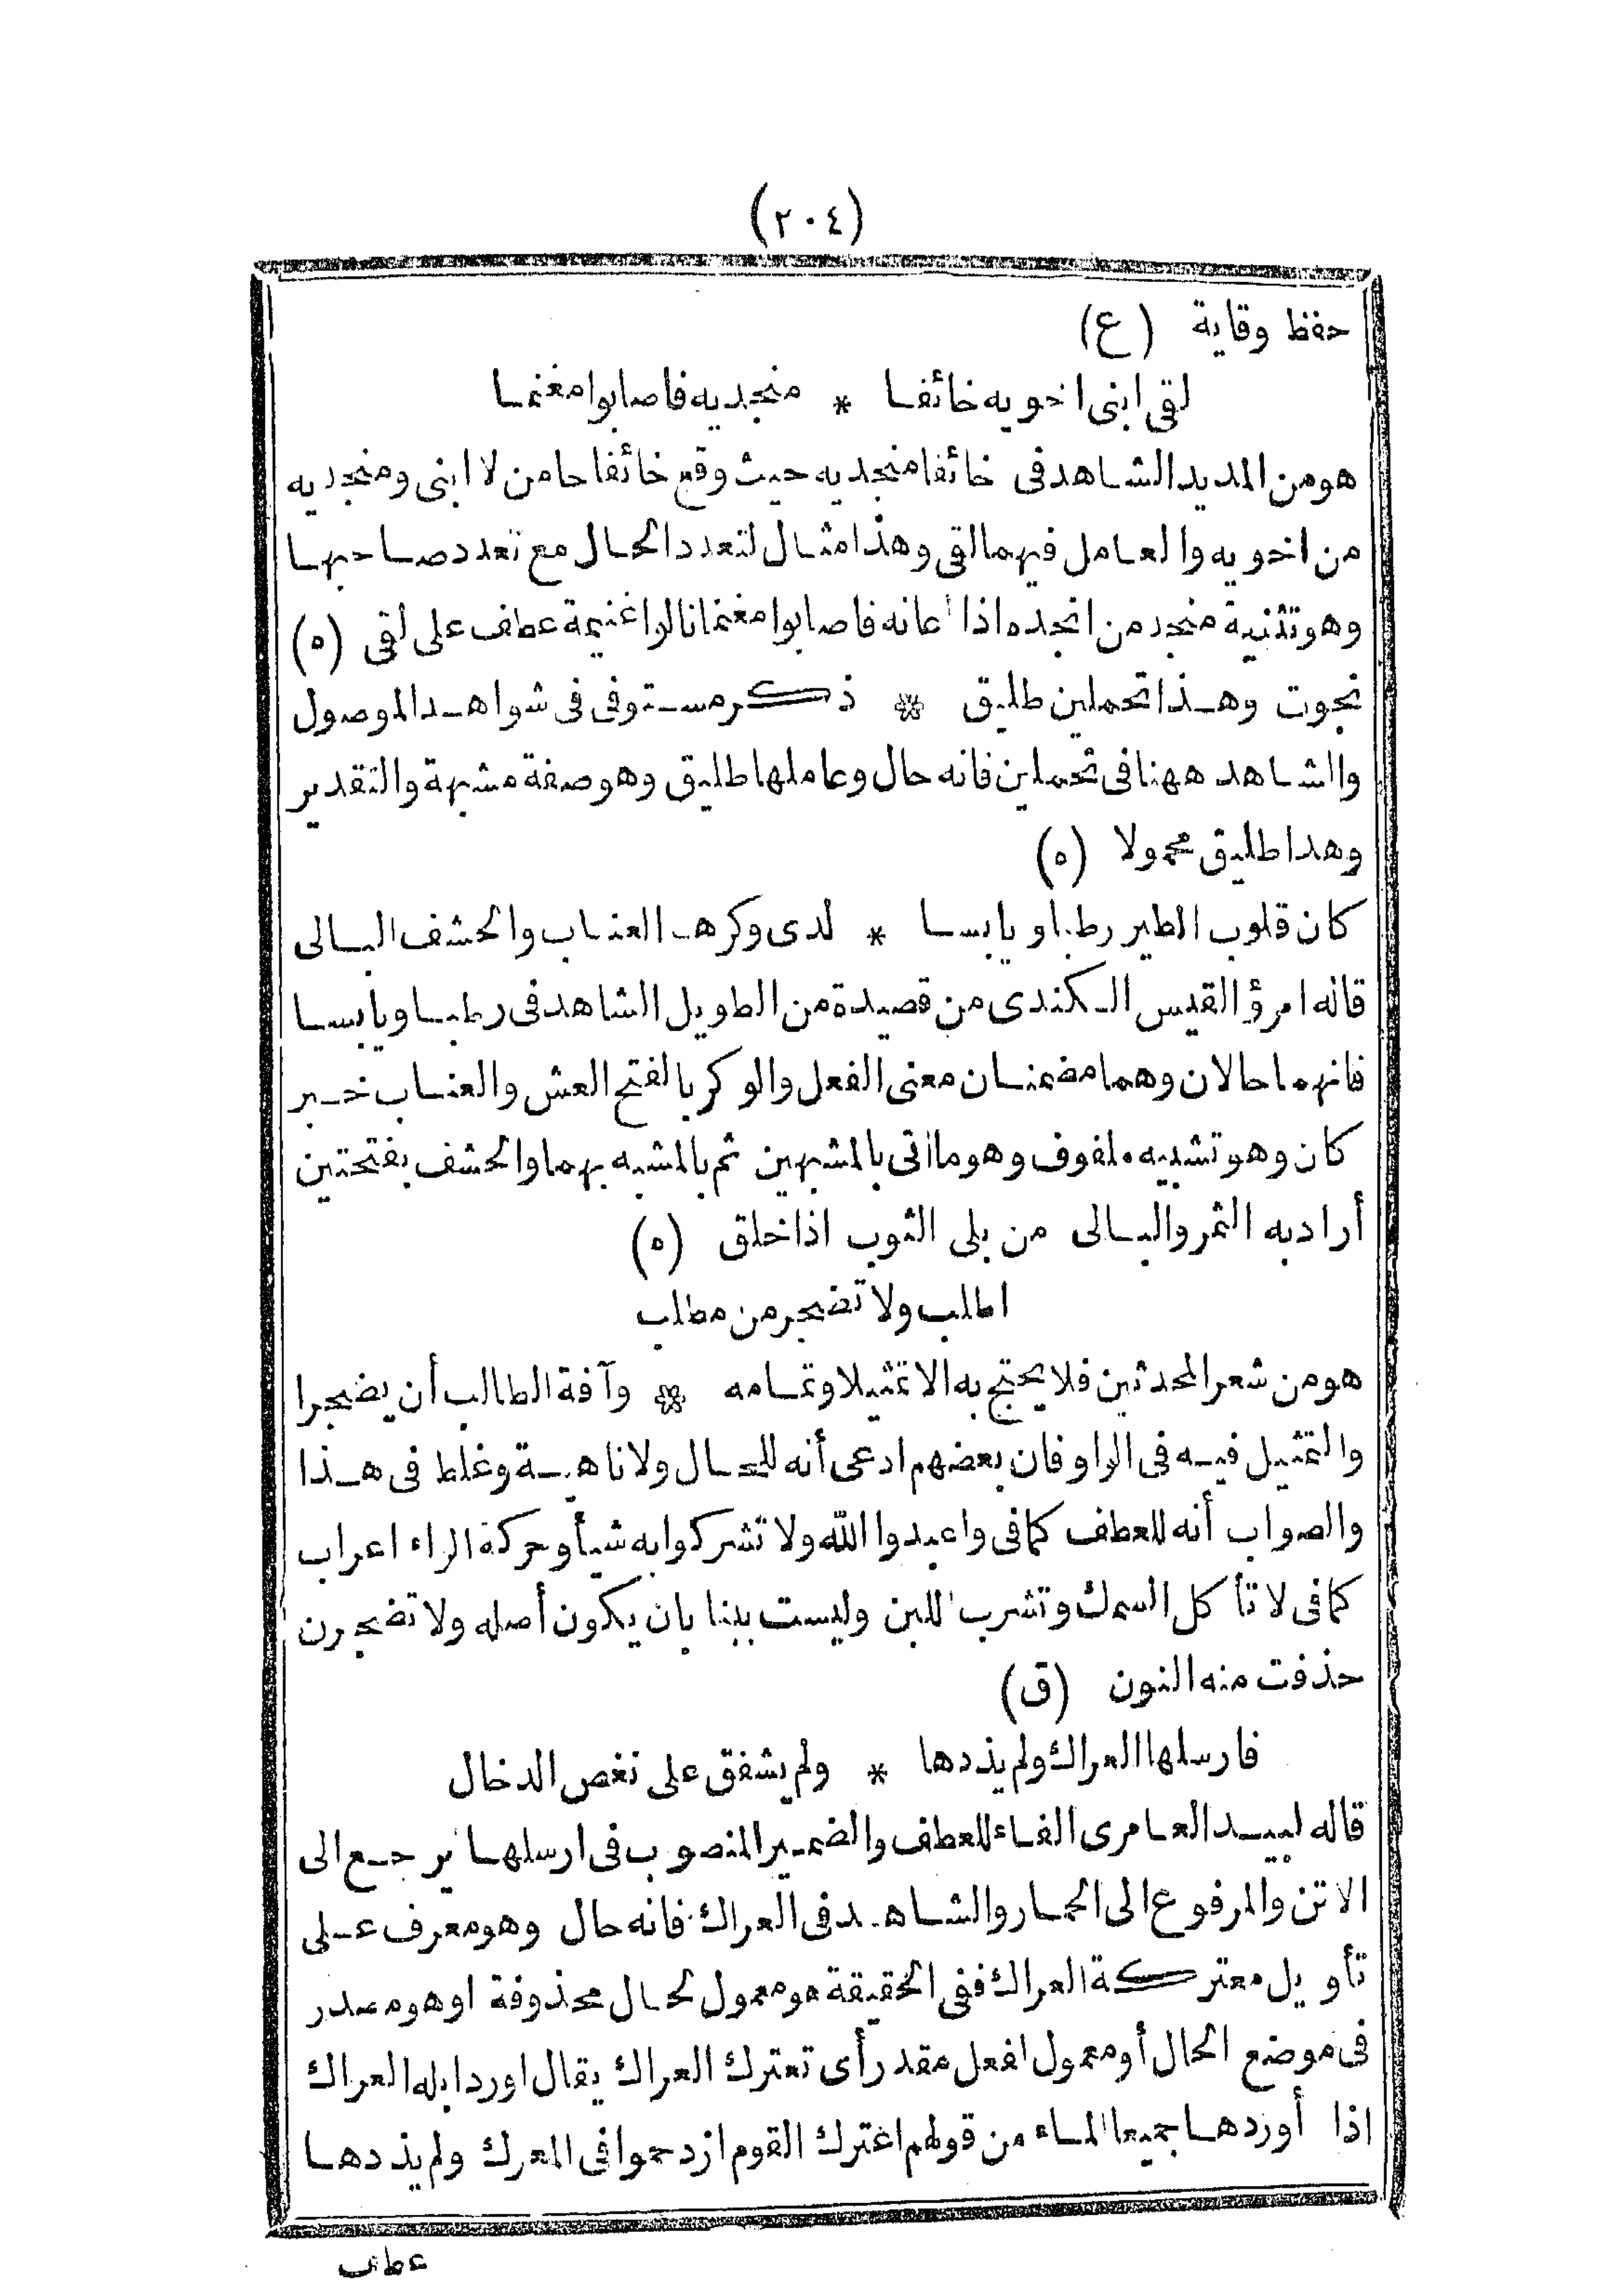 (٢٠٤)
حفظ وقاية (ع)
لقى ابنى اخويه خائفا * منجديه فاصابوا مغنما
هو من المديد الشاهد فى خائفا منجديه حيث وقع خائفا حا من لا ابنى ومنجديه
من اخويه والعامل فيهما لقى وهذا مثال لتعدد الحال مع تعدد صاحبها
وهو تثنية منجد من انجده اذا اعانه فاصابوا مغنما نالوا غنيمة عطف على لقى (ه)
نجوت وهذا تحملين طليق * ذكر مستوفى فى شواهد الموصول
والشاهد ههنا فى تحملين فانه حال وعاملها طليق وهو صفة مشبهة والتقدير
وهدا طليق محمولا (ه)
كان قلوب الطير رطبا ويابسا * لدى وكرها العناب والحشف البالى
قاله امرؤ القيس الكندى من قصيدة من الطويل الشاهد فى رطبا ويابسا
فانهما حالان وهما مضمنان معنى الفعل والوكر بالفتح العش والعناب خبر
كان وهو تشبيه ملفوف وهو ما اتى بالمشبهين ثم بالمشبه بهما والحشف بفتحتين
أراد به الثمر والبالى من بلى الثوب اذا خلق (ه)
اطلب ولا تضجر من مطلب
هو من شعر المحدثين فلا يحتج به الا تمثيلا وتمامه * وآفة الطالب أن يضجرا
والتمثيل فيه فى الواو فان بعضهم ادعى أنه للحال ولا ناهية وغلط فى هذا
والصواب أنه للعطف كما فى واعبدوا الله ولا تشركوا به شيأ وحركة الراء اعراب
كما فى لا تأكل السمك وتشرب اللبن وليست بنا بان يكون أصله ولا تضجرن
حذفت منه النون (ق)
فارسلها العراك ولم يذدها * ولم يشفق على نغص الدخال
قاله لبيد العامرى الفاء للعطف والضمير المنصوب فى ارسلها يرجع الى
الاتن والمرفوع الى الحمار والشاهد فى العراك فانه حال وهو معرف على
تأويل معتركة العراك ففى الحقيقة هو معمول لحال محذوفة او هو مصدر
فى موضع الحال أو معمول لفعل مقدر أى تعترك العراك يقال اورد ابله العراك
اذا أوردها جميعا الماء من قولهم اغترك القوم ازدحموا فى المعرك ولم يذدها
عطف